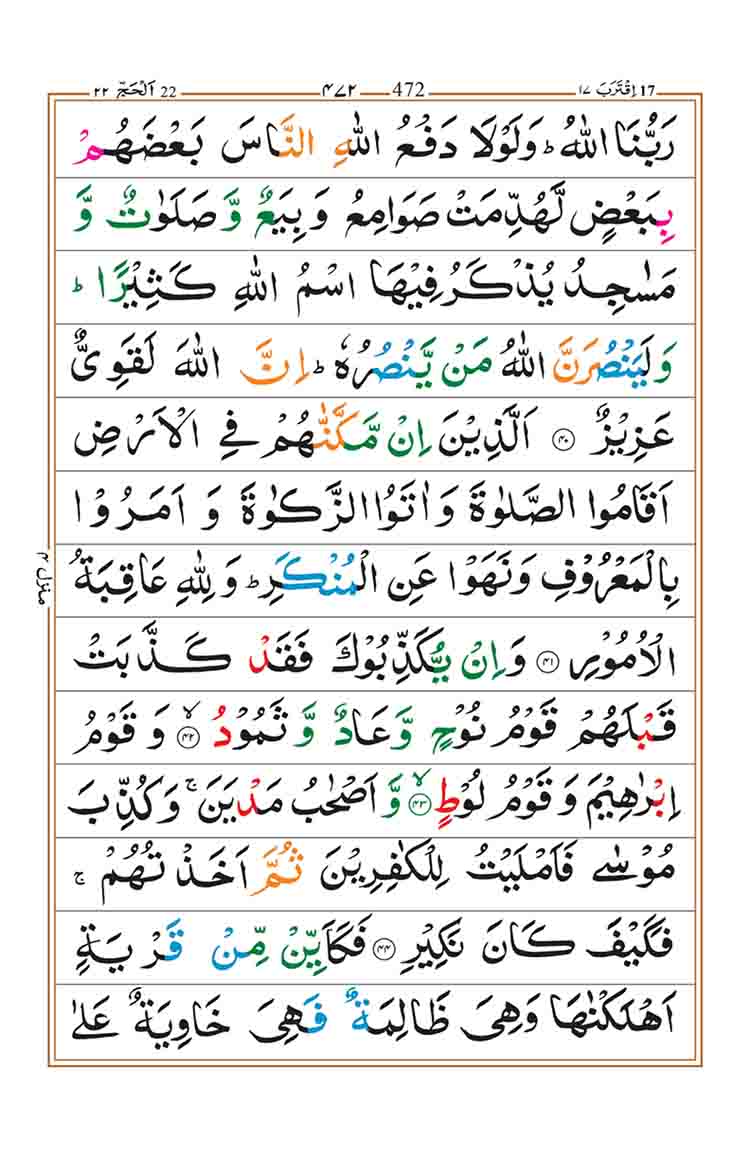 اِقْتَرَبَ ١٧ 17 472 ۴۷۲ اَلْحَجّ ٢٢ 22
رَبُّنَا اللّٰهُ ؕ وَلَوْلَا دَفْعُ اللّٰهِ النَّاسَ بَعْضَهُمْ
بِبَعْضٍ لَّهُدِّمَتْ صَوَامِعُ وَ بِيَعٌ وَّ صَلَوٰتٌ وَّ
مَسٰجِدُ يُذْكَرُ فِيْهَا اسْمُ اللّٰهِ كَثِيْرًا ؕ
وَلَيَنْصُرَنَّ اللّٰهُ مَنْ يَّنْصُرُهٗ ؕ اِنَّ اللّٰهَ لَقَوِىٌّ
عَزِيْزٌ ۴۰ اَلَّذِيْنَ اِنْ مَّكَّنّٰهُمْ فِى الْاَرْضِ
اَقَامُوا الصَّلٰوةَ وَ اٰتَوُا الزَّكٰوةَ وَ اَمَرُوْا
بِالْمَعْرُوْفِ وَ نَهَوْا عَنِ الْمُنْكَرِ ؕ وَ لِلّٰهِ عَاقِبَةُ
الْاُمُوْرِ ۴۱ وَ اِنْ يُّكَذِّبُوْكَ فَقَدْ كَذَّبَتْ
قَبْلَهُمْ قَوْمُ نُوْحٍ وَّ عَادٌ وَّ ثَمُوْدُ ۙ ۴۲ وَ قَوْمُ
اِبْرٰهِيْمَ وَ قَوْمُ لُوْطٍ ۙ ۴۳ وَّ اَصْحٰبُ مَدْيَنَ ۚ وَ كُذِّبَ
مُوْسٰى فَاَمْلَيْتُ لِلْكٰفِرِيْنَ ثُمَّ اَخَذْتُهُمْ ۚ
فَكَيْفَ كَانَ نَكِيْرِ ۴۴ فَكَاَيِّنْ مِّنْ قَرْيَةٍ
اَهْلَكْنٰهَا وَهِىَ ظَالِمَةٌ فَهِىَ خَاوِيَةٌ عَلٰى
منزل ۴